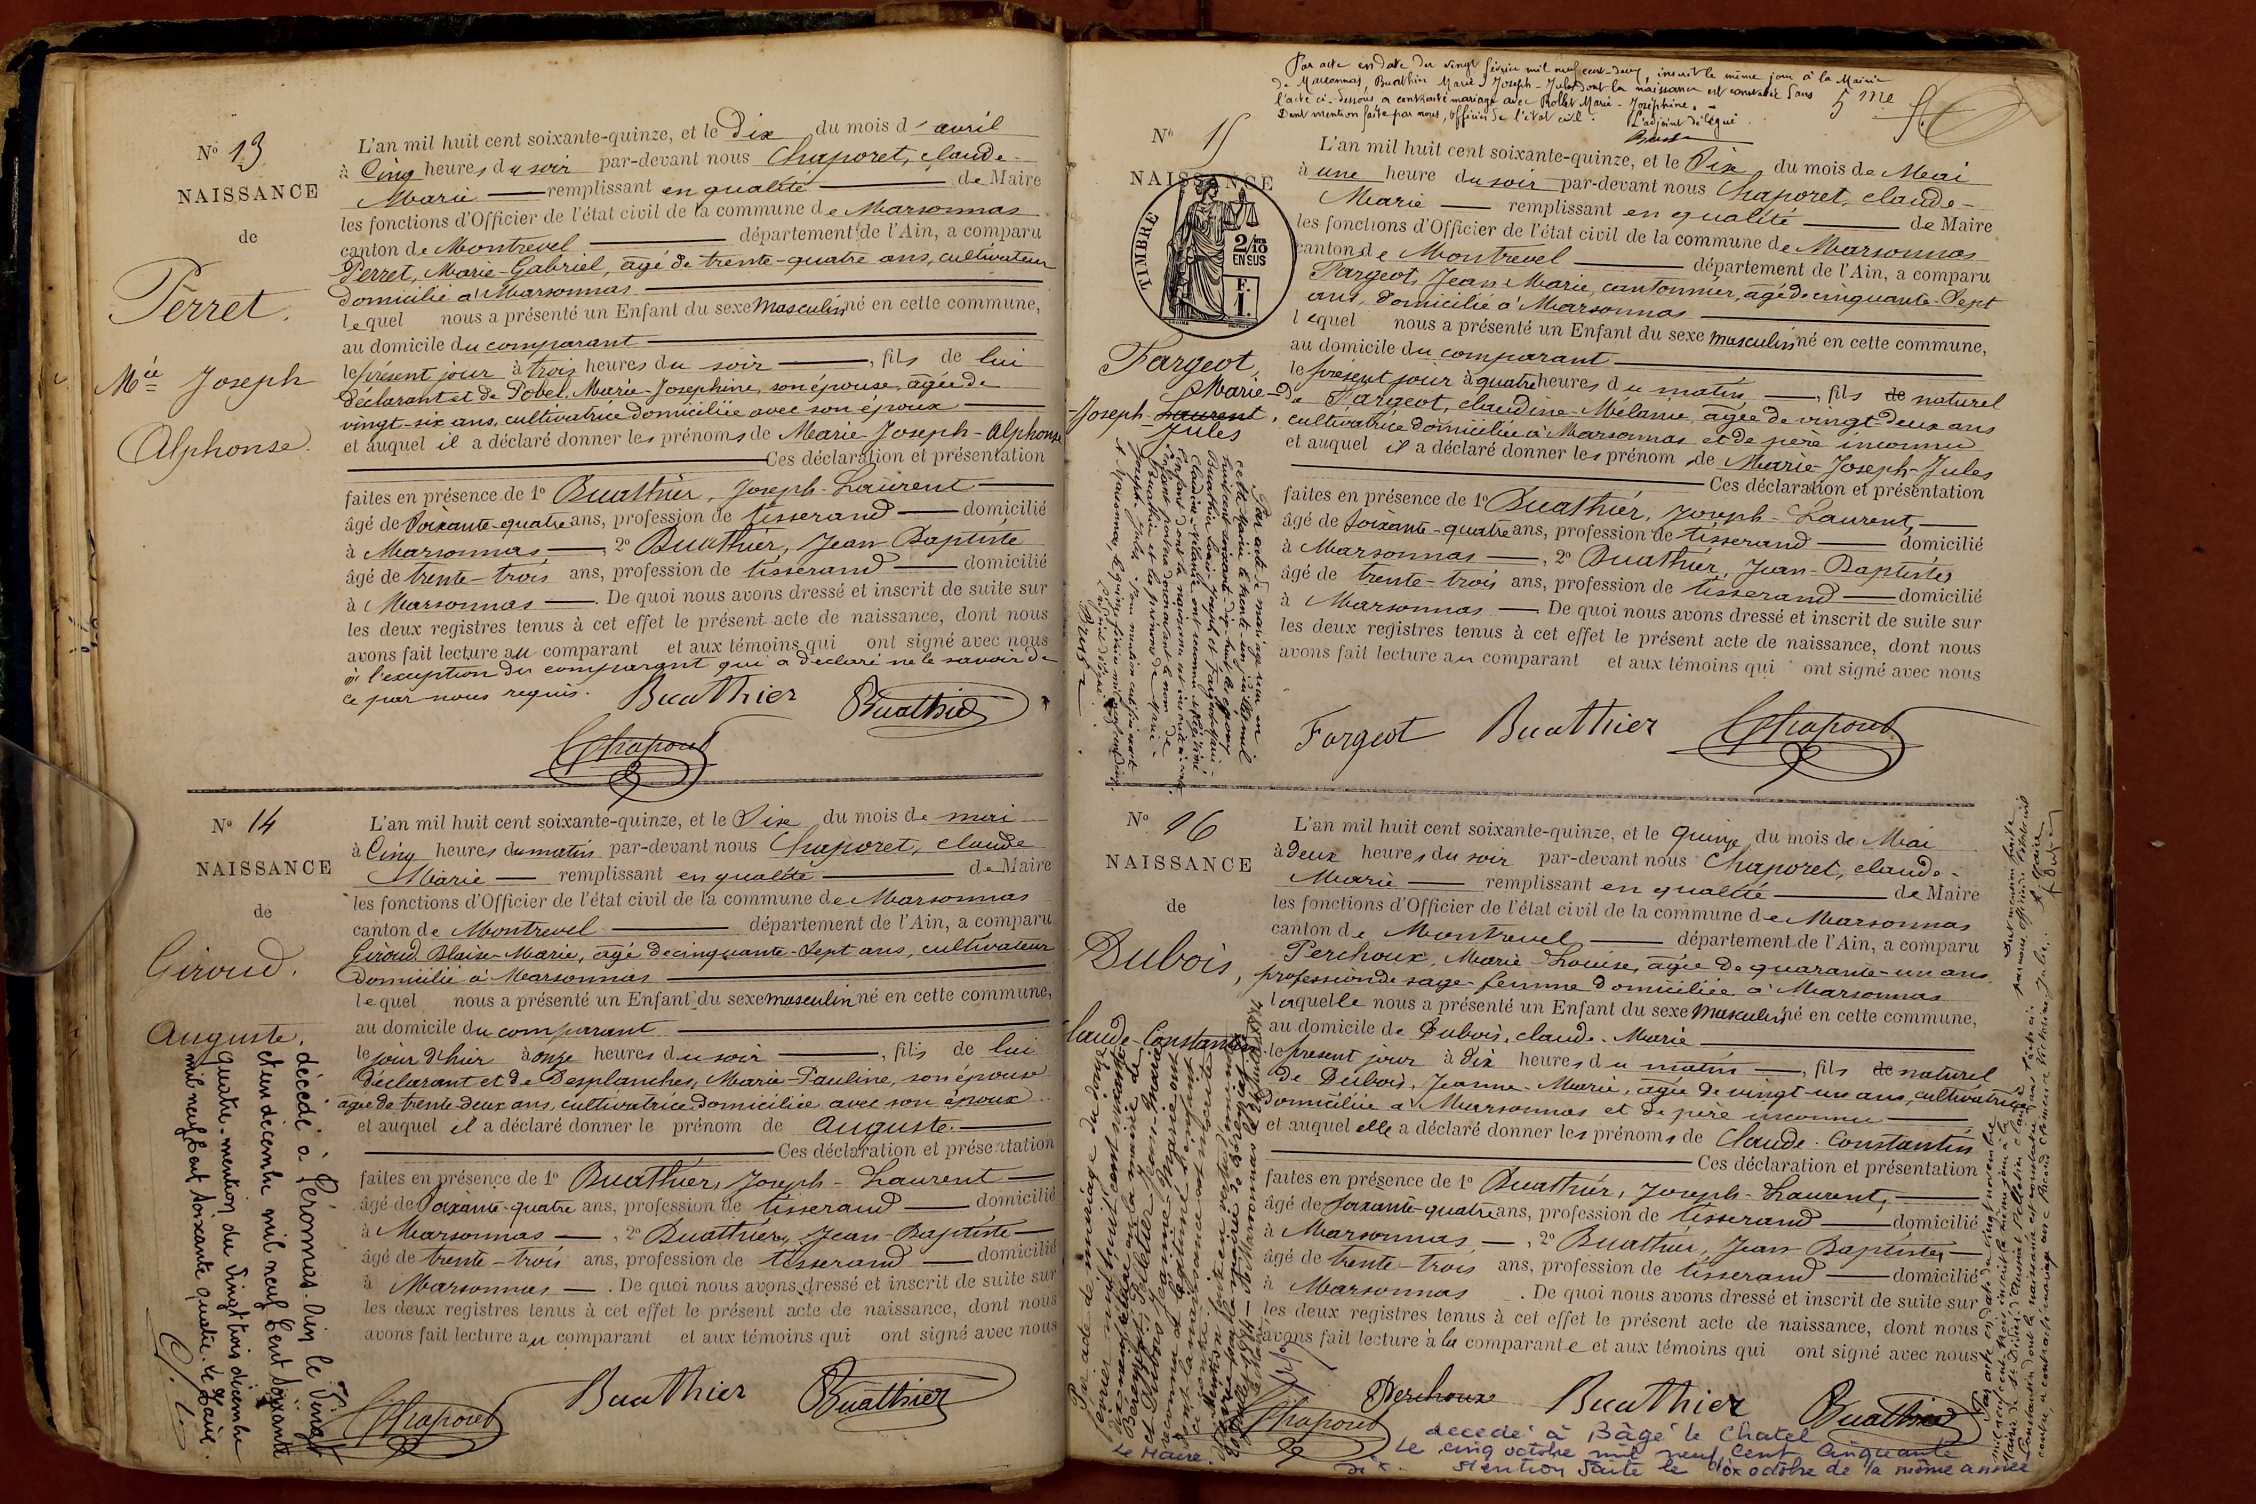 Nº 13
NAISSANCE
de
Perret.
Mie Joseph
Alphonse.
L'an mil huit cent soixante-quinze, et le Dix du mois d'avril
à Cinq heures du soir par-devant nous Chaporet, claude-
Marie remplissant en qualité de Maire
les fonctions d'Officier de l'état civil de la commune de Marsonnas
canton de Montrevel département de l'Ain, a comparu
Perret, Marie-Gabriel, âgé de trente-quatre ans, cultivateur
domicilié à Marsonnas
lequel nous a présenté un Enfant du sexe masculin né en cette commune,
au domicile du comparant
le présent jour à trois heures du soir, fils de lui
déclarant et de Pobel, Marie-Josephine, son épouse, âgée de
vingt-six ans, cultivatrice domiciliée avec son époux
et auquel il a déclaré donner les prénoms de Marie-Joseph-Alphonse
Ces déclaration et présentation
faites en présence de 1º Buathier, Joseph-Laurent
âgé de Soixante-quatre ans, profession de tisserand domicilié
à Marsonnas, 2º Buathier, Jean-Baptiste
âgé de trente-trois ans, profession de tisserand domicilié
à Marsonnas. De quoi nous avons dressé et inscrit de suite sur
les deux registres tenus à cet effet le présent acte de naissance, dont nous
avons fait lecture au comparant et aux témoins qui ont signé avec nous
à l'exception du comparant qui a déclaré ne le savoir de
ce par nous requis. Buathier Buathier
Chaporet
Nº 14
NAISSANCE
de
Giroud.
Auguste.
décédé à Péronnas-Ain le Vingt
et un décembre mil neuf Cent Soixante
quatre. mention du Vingt trois décembre
mil neuf Cent Soixante quatre. Le Maire.
L'an mil huit cent soixante-quinze, et le Dix du mois de mai
à Cinq heures du matin par-devant nous Chaporet, claude
Marie remplissant en qualité de Maire
les fonctions d'Officier de l'état civil de la commune de Marsonnas
canton de Montrevel département de l'Ain, a comparu
Giroud Blaise-Marie, âgé de cinquante-Sept ans, cultivateur
domicilié à Marsonnas
lequel nous a présenté un Enfant du sexe masculin né en cette commune,
au domicile du comparant
le jour d'hier à onze heures du soir, fils de lui
déclarant et de Desplanches, Marie-Pauline, son épouse
âgée de trente-deux ans, cultivatrice domiciliée avec son époux
et auquel il a déclaré donner le prénom de Auguste.
Ces déclaration et présentation
faites en présence de 1º Buathier, Joseph-Laurent
âgé de Soixante-quatre ans, profession de tisserand domicilié
à Marsonnas, 2º Buathier, Jean-Baptiste
âgé de trente-trois ans, profession de tisserand domicilié
à Marsonnas. De quoi nous avons dressé et inscrit de suite sur
les deux registres tenus à cet effet le présent acte de naissance, dont nous
avons fait lecture au comparant et aux témoins qui ont signé avec nous
Chaporet Buathier Buathier
Par acte en date du vingt février mil neuf cent-deux, inscrit le même jour à la Mairie
de Marsonnas, Buathier Marie Joseph-Jules dont la naissance est constatée dans
l'acte ci-dessous a contracté mariage avec Rollet Marie-Joséphine.
Dont mention faite par nous, officier de l'état civil. L'adjoint délégué.
5me
Nº 15
NAISSANCE
TIMBRE
2/10 EN SUS
F.
1.
Fargeot,
Marie-
-Joseph-Laurent
Jules
L'an mil huit cent soixante-quinze, et le Dix du mois de Mai
à une heure du soir par-devant nous Chaporet, claude-
Marie remplissant en qualité de Maire
les fonctions d'Officier de l'état civil de la commune de Marsonnas
canton de Montrevel département de l'Ain, a comparu
Fargeot, Jean-Marie, cantonnier, âgé de cinquante-Sept
ans, domicilié à Marsonnas
lequel nous a présenté un Enfant du sexe masculin né en cette commune,
au domicile du comparant
le présent jour à quatre heures du matin, fils de naturel
de Fargeot, claudine-Mélanie, âgée de vingt-deux ans
cultivatrice domiciliée à Marsonnas et de père inconnu
et auquel il a déclaré donner les prénom de Marie-Joseph-Jules
Ces déclaration et présentation
faites en présence de 1º Buathier, Joseph-Laurent,
âgé de Soixante-quatre ans, profession de tisserand domicilié
à Marsonnas, 2º Buathier, Jean-Baptiste
âgé de trente-trois ans, profession de tisserand domicilié
à Marsonnas De quoi nous avons dressé et inscrit de suite sur
les deux registres tenus à cet effet le présent acte de naissance, dont nous
avons fait lecture au comparant et aux témoins qui ont signé avec nous
Fargeot Buathier Chaporet
Nº 16
NAISSANCE
de
Dubois,
Claude-Constantin
L'an mil huit cent soixante-quinze, et le quinze du mois de Mai
à deux heures du soir par-devant nous Chaporet, claude-
Marie remplissant en qualité de Maire
les fonctions d'Officier de l'état civil de la commune de Marsonnas
canton de Montrevel département de l'Ain, a comparu
Perchoux, Marie-Louise, âgée de quarante-un ans
profession de sage-femme domiciliée à Marsonnas
laquelle nous a présenté un Enfant du sexe masculin né en cette commune,
au domicile de Dubois, claude-Marie
le présent jour à dix heures du matin, fils de naturel
de Dubois, Jeanne-Marie, âgée de vingt-un ans, cultivatrice
domiciliée à Marsonnas et de père inconnu
et auquel elle a déclaré donner les prénoms de Claude-Constantin
Ces déclaration et présentation
faites en présence de 1º Buathier, Joseph-Laurent,
âgé de soixante-quatre ans, profession de tisserand domicilié
à Marsonnas, 2º Buathier, Jean-Baptiste,
âgé de trente-trois ans, profession de tisserand domicilié
à Marsonnas. De quoi nous avons dressé et inscrit de suite sur
les deux registres tenus à cet effet le présent acte de naissance, dont nous
avons fait lecture à la comparante et aux témoins qui ont signé avec nous
Perchoux Buathier Buathier
Chaporet
Le Maire.
decedé à Bâgé le Chatel
Le cinq octobre mil neuf cent cinquante
six. Mention faite le dix octobre de la même année